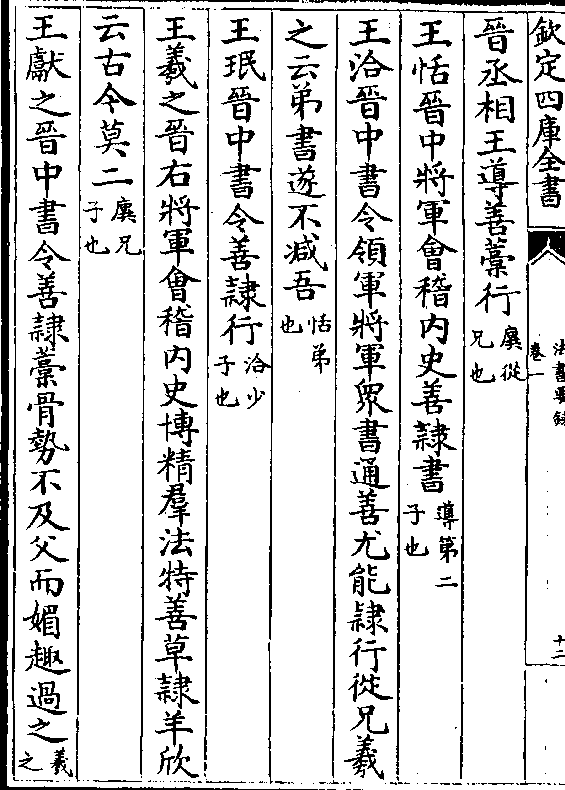 欽定四庫全書
法書要錄
卷一
十二
晉丞相王導善藁行廙從兄也
王恬晉中將軍會稽內史善隷書導第二子也
王洽晉中書令領軍將軍衆書通善尤能隷行從兄羲
之云弟書遂不減吾恬弟也
王珉晉中書令善隷行洽少子也
王羲之晉右將軍會稽內史博精羣法特善草隷羊欣
云古今莫二廙兄子也
王獻之晉中書令善隷藁骨勢不及父而媚趣過之羲之